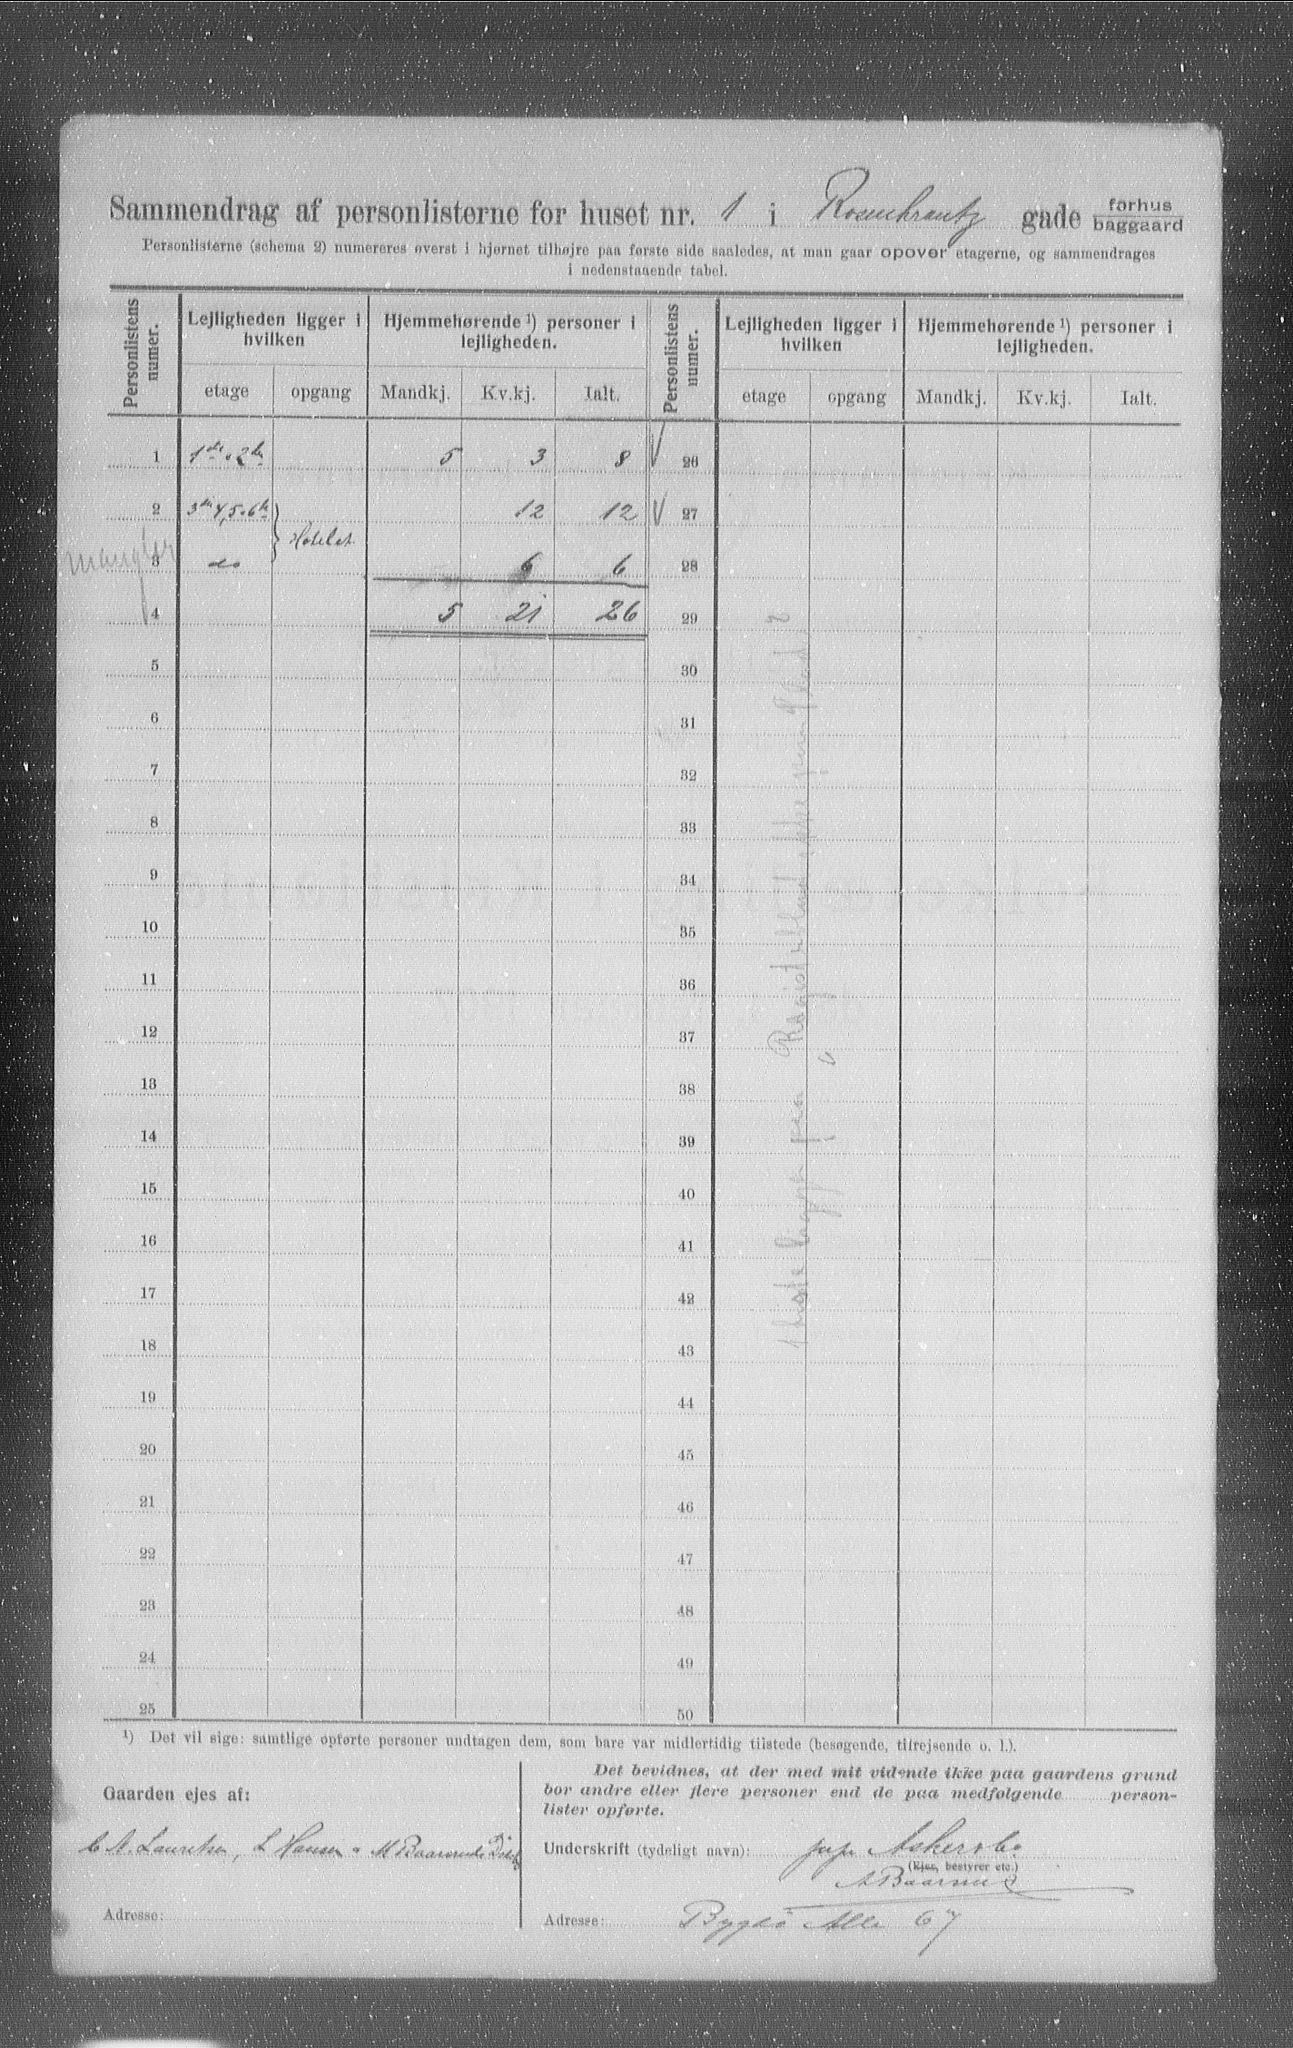 Sammendrag af personlisterne for huset nr. 1 i Rosenkrantz gade forhus baggaard
Personlisterne (schema 2) numereres øverst i hjørnet tilhøjre paa første side saaledes, at man gaar opover etagerne, og sammendrages
i nedenstaaende tabel.
Personlistens numer. Lejligheden ligger i hvilken Hjemmehørende ¹) personer i lejligheden. Personlistens numer. Lejligheden ligger i hvilken Hjemmehørende ¹) personer i lejligheden.
etage opgang Mandkj. Kv.kj. Ialt. etage opgang Mandkj. Kv.kj. Ialt.
1 1ste 2den 5 3 8 26
2 3die 4, 5 6te Hotellet 12 12 27
mangler
3 do 6 6 28
4 5 21 26 29
5 30
6 31
7 32
8 33
9 34
10 35
11 36
12 37
13 38
14 39
15 40
16 41
17 42
18 43
19 44
20 45
21 46
22 47
23 48
24 49
25 50
ligger paa
¹) Det vil sige: samtlige opførte personer undtagen dem, som bare var midlertidig tilstede (besøgende, tilrejsende o. l.).
Gaarden ejes af:
A. Lauritsen, L Hansen
Adresse:
Det bevidnes, at der med mit vidende ikke paa gaardens grund
bor andre eller flere personer end de paa medfølgende person-
lister opførte.
Underskrift (tydeligt navn):
(Ejer, bestyrer etc.)
Adresse: Bygdö Alle 67